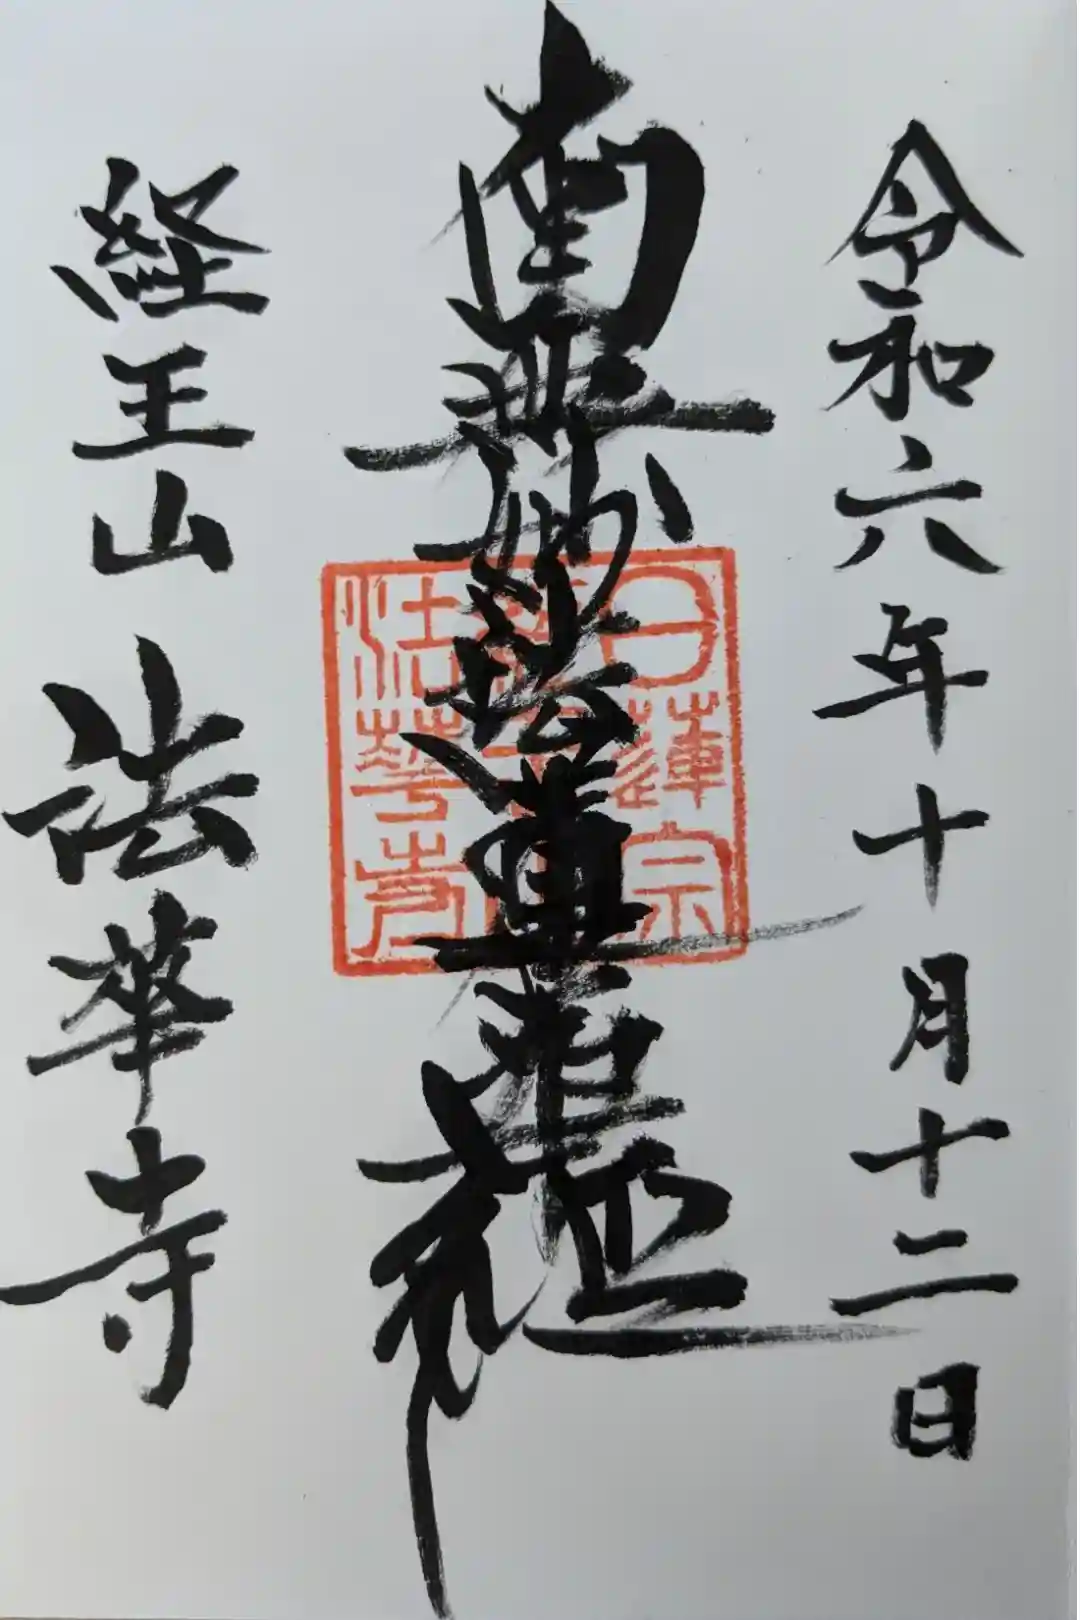 令和六年十月十二日
南無妙法蓮華経
経王山 法華寺
日蓮宗
法華寺